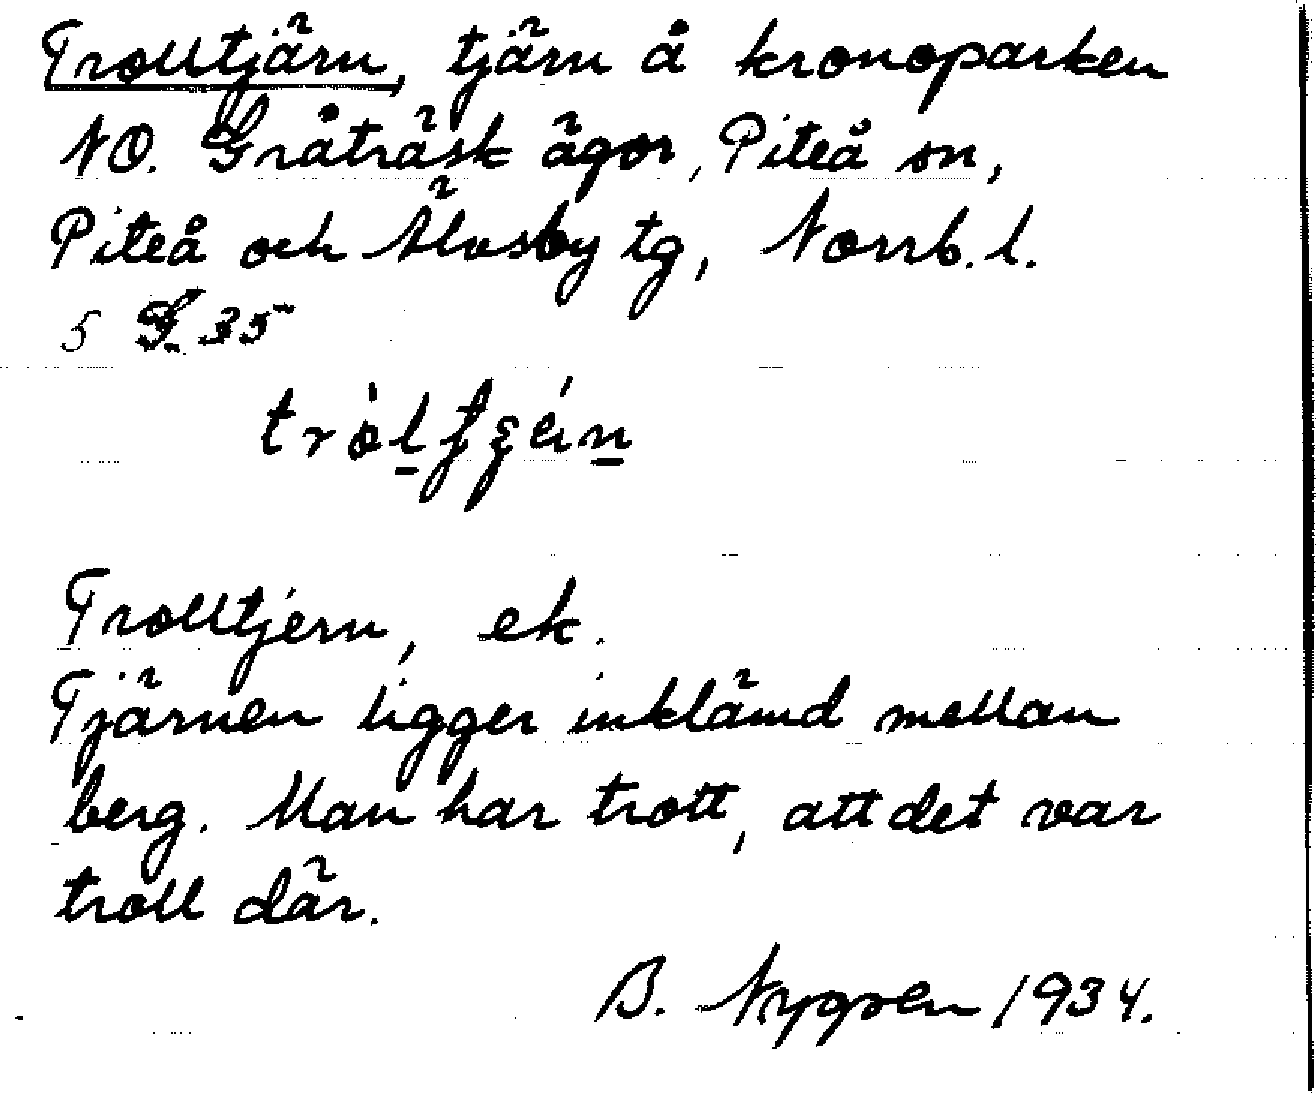 Trolltjärn, tjärn å kronoparken
NO. Gråträsk ägor, Piteå sn,
Piteå och Älvsby tg, Norrb. l.
5 S. 35
Trolltjern, ek.
Tjärnen ligger inklämd mellan
berg. Man har trott, att det var
troll där.
B. Nygren 1934.